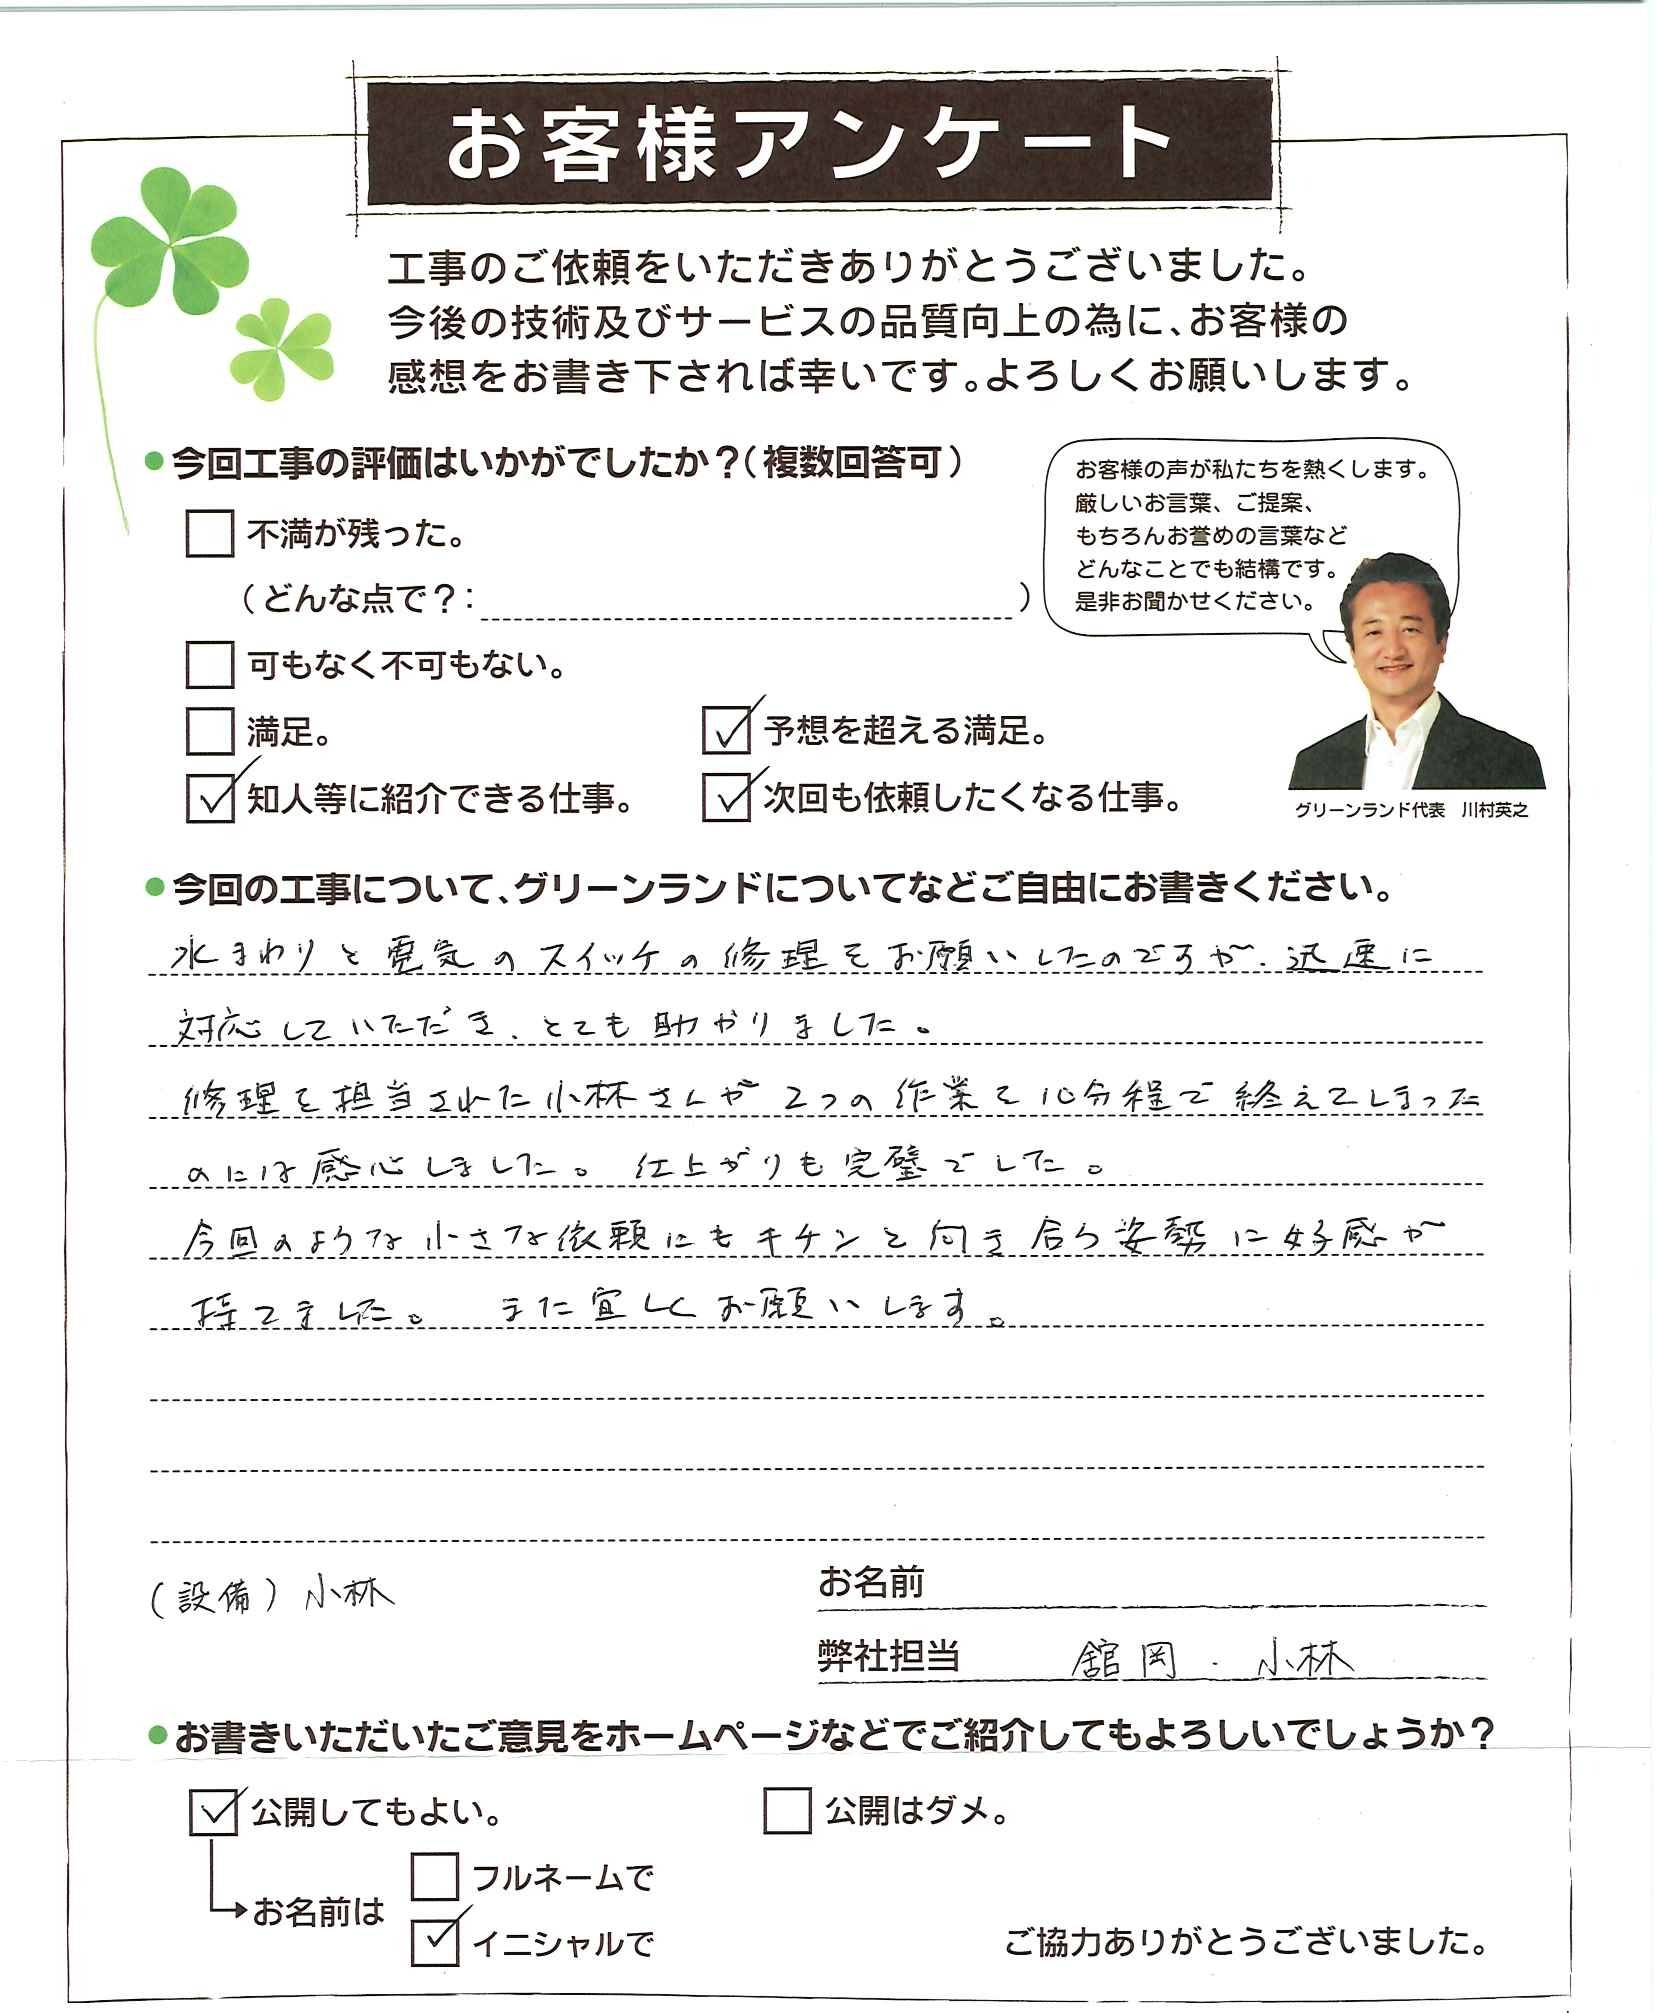 お客様アンケート
工事のご依頼をいただきありがとうございました。
今後の技術及びサービスの品質向上の為に、お客様の
感想をお書き下されば幸いです。よろしくお願いします。
●今回工事の評価はいかがでしたか？（複数回答可）
お客様の声が私たちを熱くします。
厳しいお言葉、ご提案、
もちろんお誉めの言葉など
どんなことでも結構です。
是非お聞かせください。
不満が残った。
（どんな点で？：　　　）
可もなく不可もない。
満足。
予想を超える満足。
知人等に紹介できる仕事。
次回も依頼したくなる仕事。
グリーンランド代表　川村英之
●今回の工事について、グリーンランドについてなどご自由にお書きください。
水まわりと電気のスイッチの修理をお願いしたのですが、迅速に
対応していただき、とても助かりました。
修理を担当された小林さんが2つの作業を10分程で終えてしまった
のには感心しました。仕上がりも完璧でした。
今回のような小さな依頼にもキチンと向き合う姿勢に好感が
持てました。　また宜しくお願いします。
（設備）小林
お名前
弊社担当　舘岡・小林
●お書きいただいたご意見をホームページなどでご紹介してもよろしいでしょうか？
公開してもよい。
公開はダメ。
お名前は
フルネームで
イニシャルで
ご協力ありがとうございました。